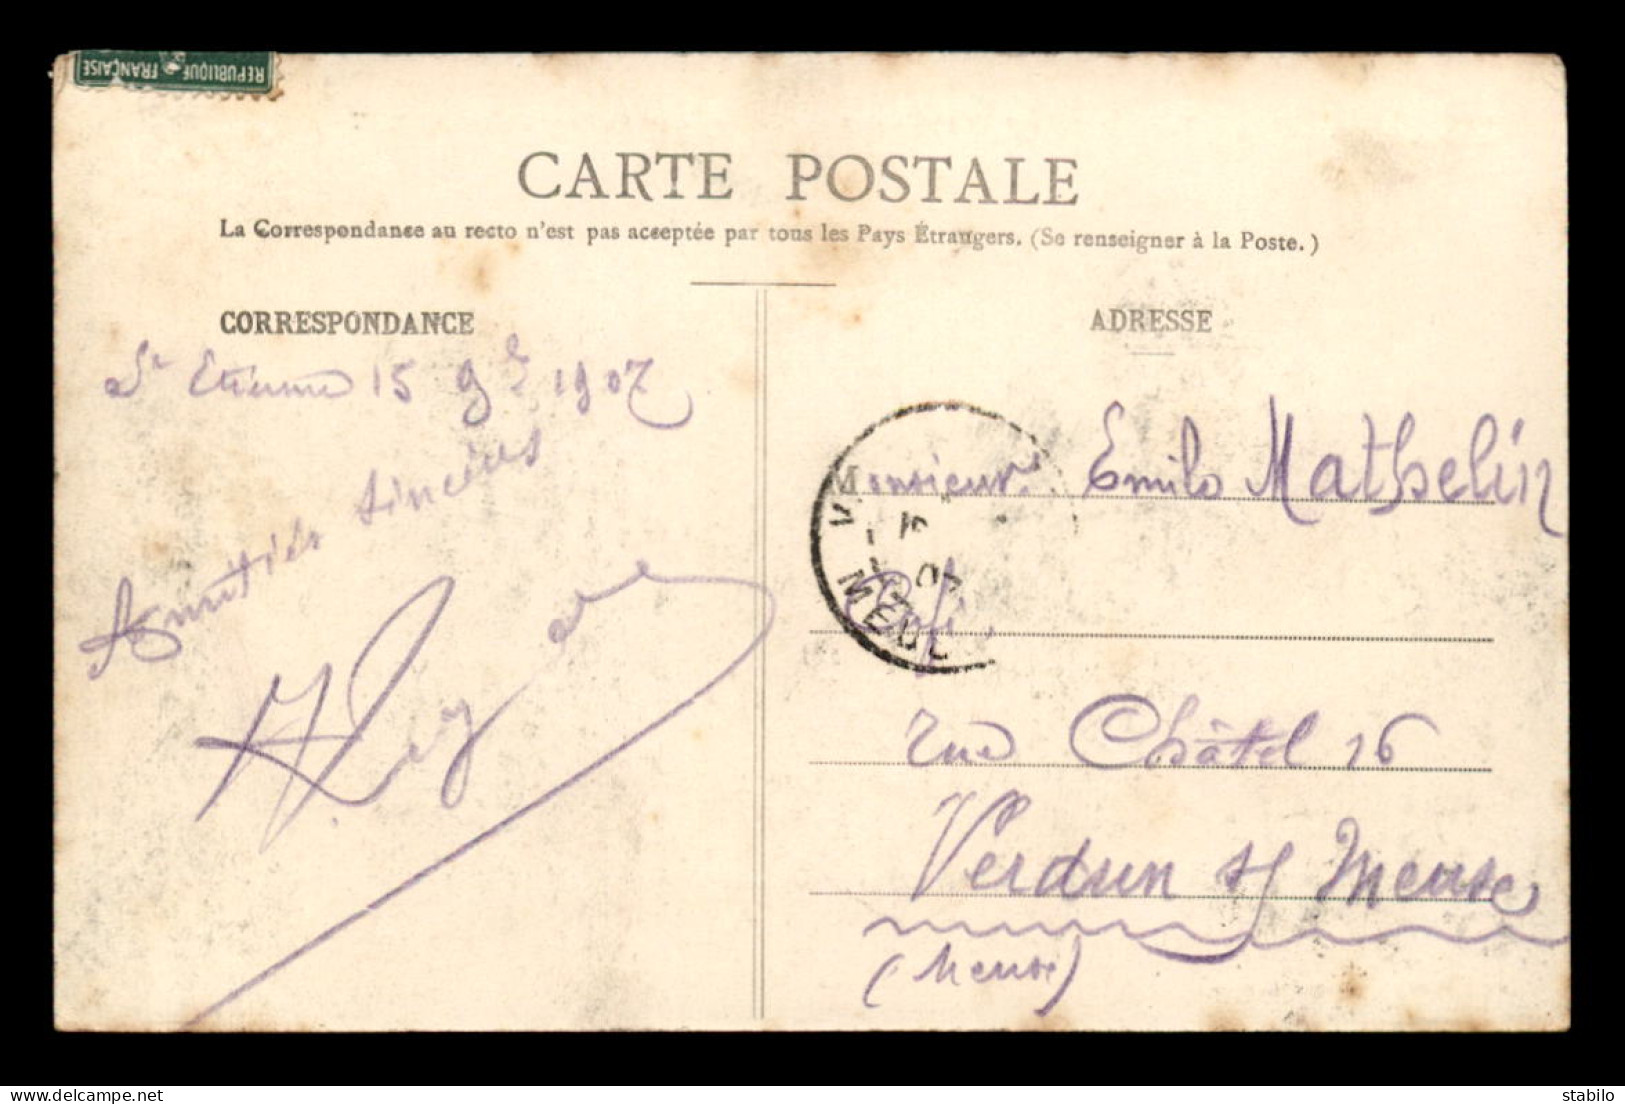 REPUBLIQUE FRANÇAISE
CARTE POSTALE
La Correspondance au recto n'est pas acceptée par tous les Pays Étrangers. (Se renseigner à la Poste.)
CORRESPONDANCE
St Etienne 15 9bre 1907
Amitiés sincères
ADRESSE
Monsieur Emile Mathelin
rue Châtel 16
Verdun s/ Meuse
(Meuse)
07
MEU
delcampe.net
stabilo